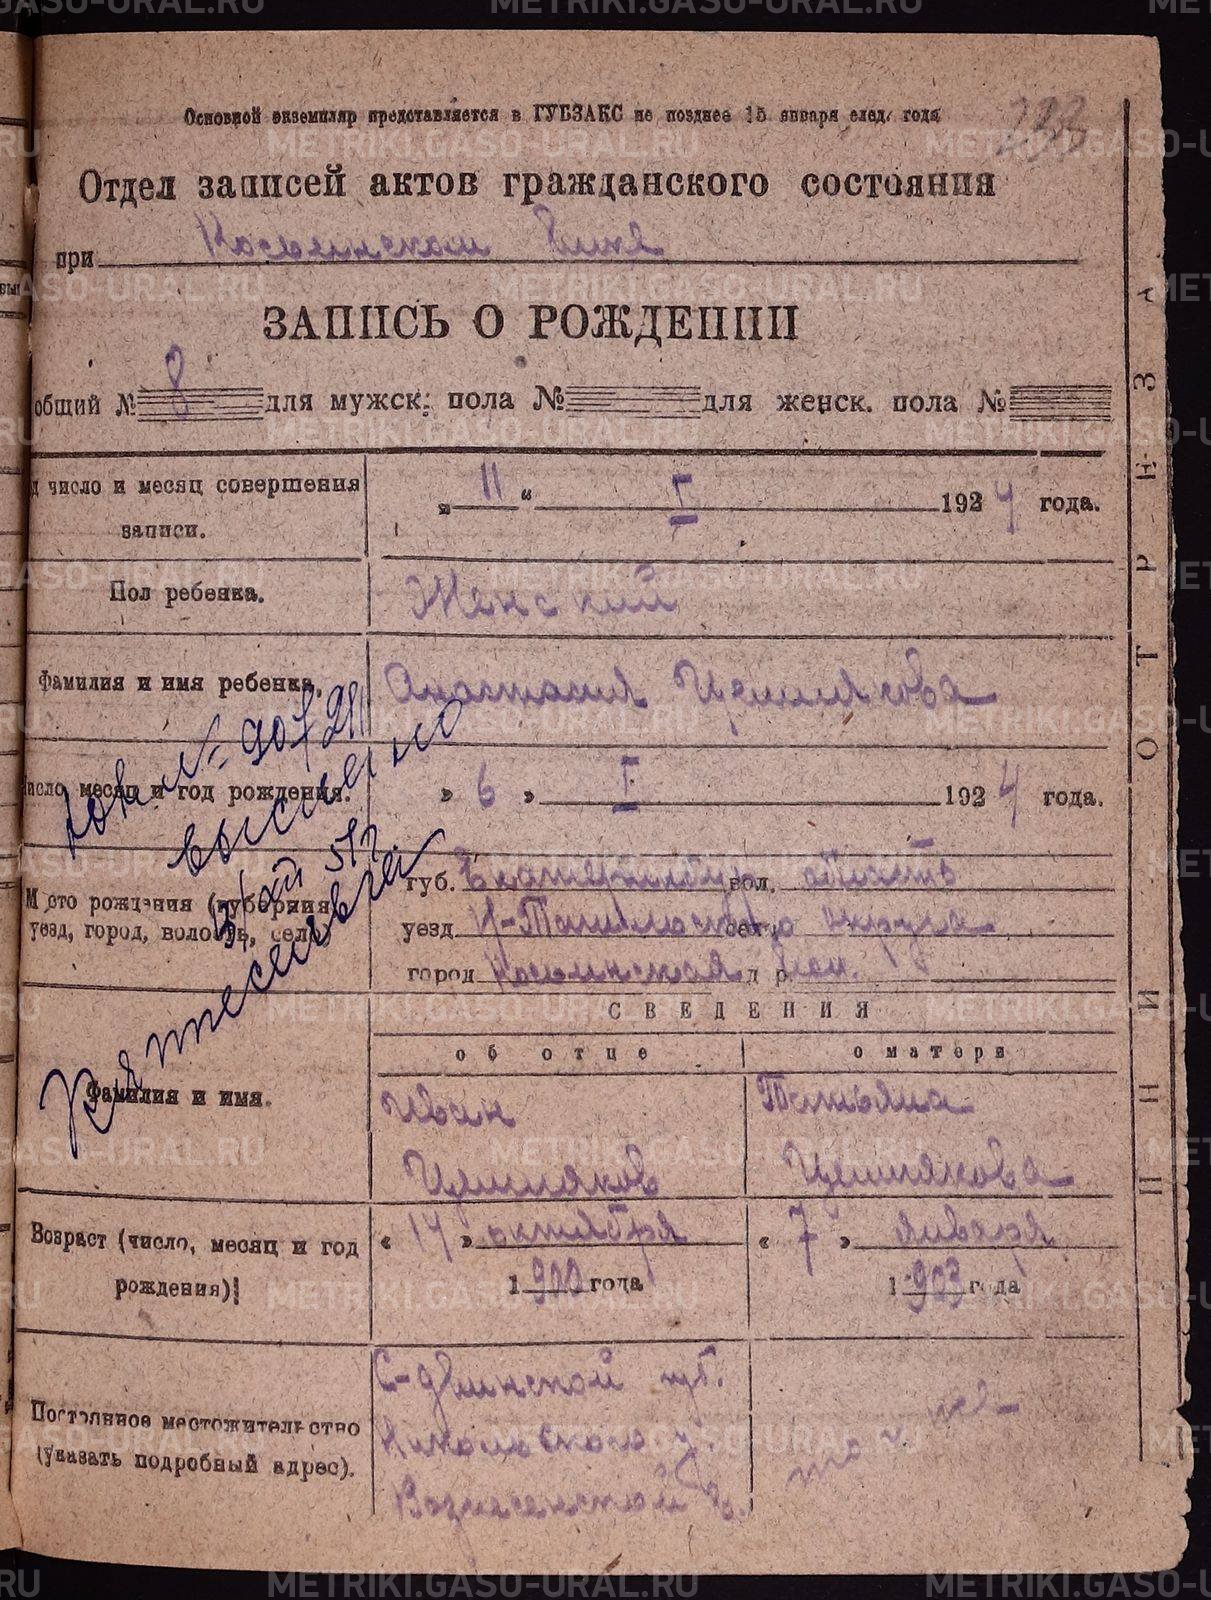 Основной экземпляр представляется в ГУБЗАКС не позднее 15 января след. года
Отдел записей актов гражданского состояния
при
ЗАПИСЬ О РОЖДЕНИИ
общий № 8 для мужск. пола № для женск. пола №
число и месяц совершения записи.
„ 11 “ I 1924 года.
Пол ребенка.
Женский
Фамилия и имя ребенка.
Анастасия
Число, месяц и год рождения.
» 6 » I 1924 года.
Место рождения (губерния, уезд, город, волость, село)
губ. вол.
уезд Н-Тагильского округа
город
выслано
СВЕДЕНИЯ
об отце
о матери
Фамилия и имя.
Иван
Татьяна
Возраст (число, месяц и год рождения)
« 14 » октября 1900 года
« 7 » января 1903 года
Постоянное местожительство (указать подробный адрес).
С-Двинской губ.
Никольского у.
Вознесенской в.
то же
ЛИНИЯ ОТРЕЗА
METRIKI.GASO-URAL.RU